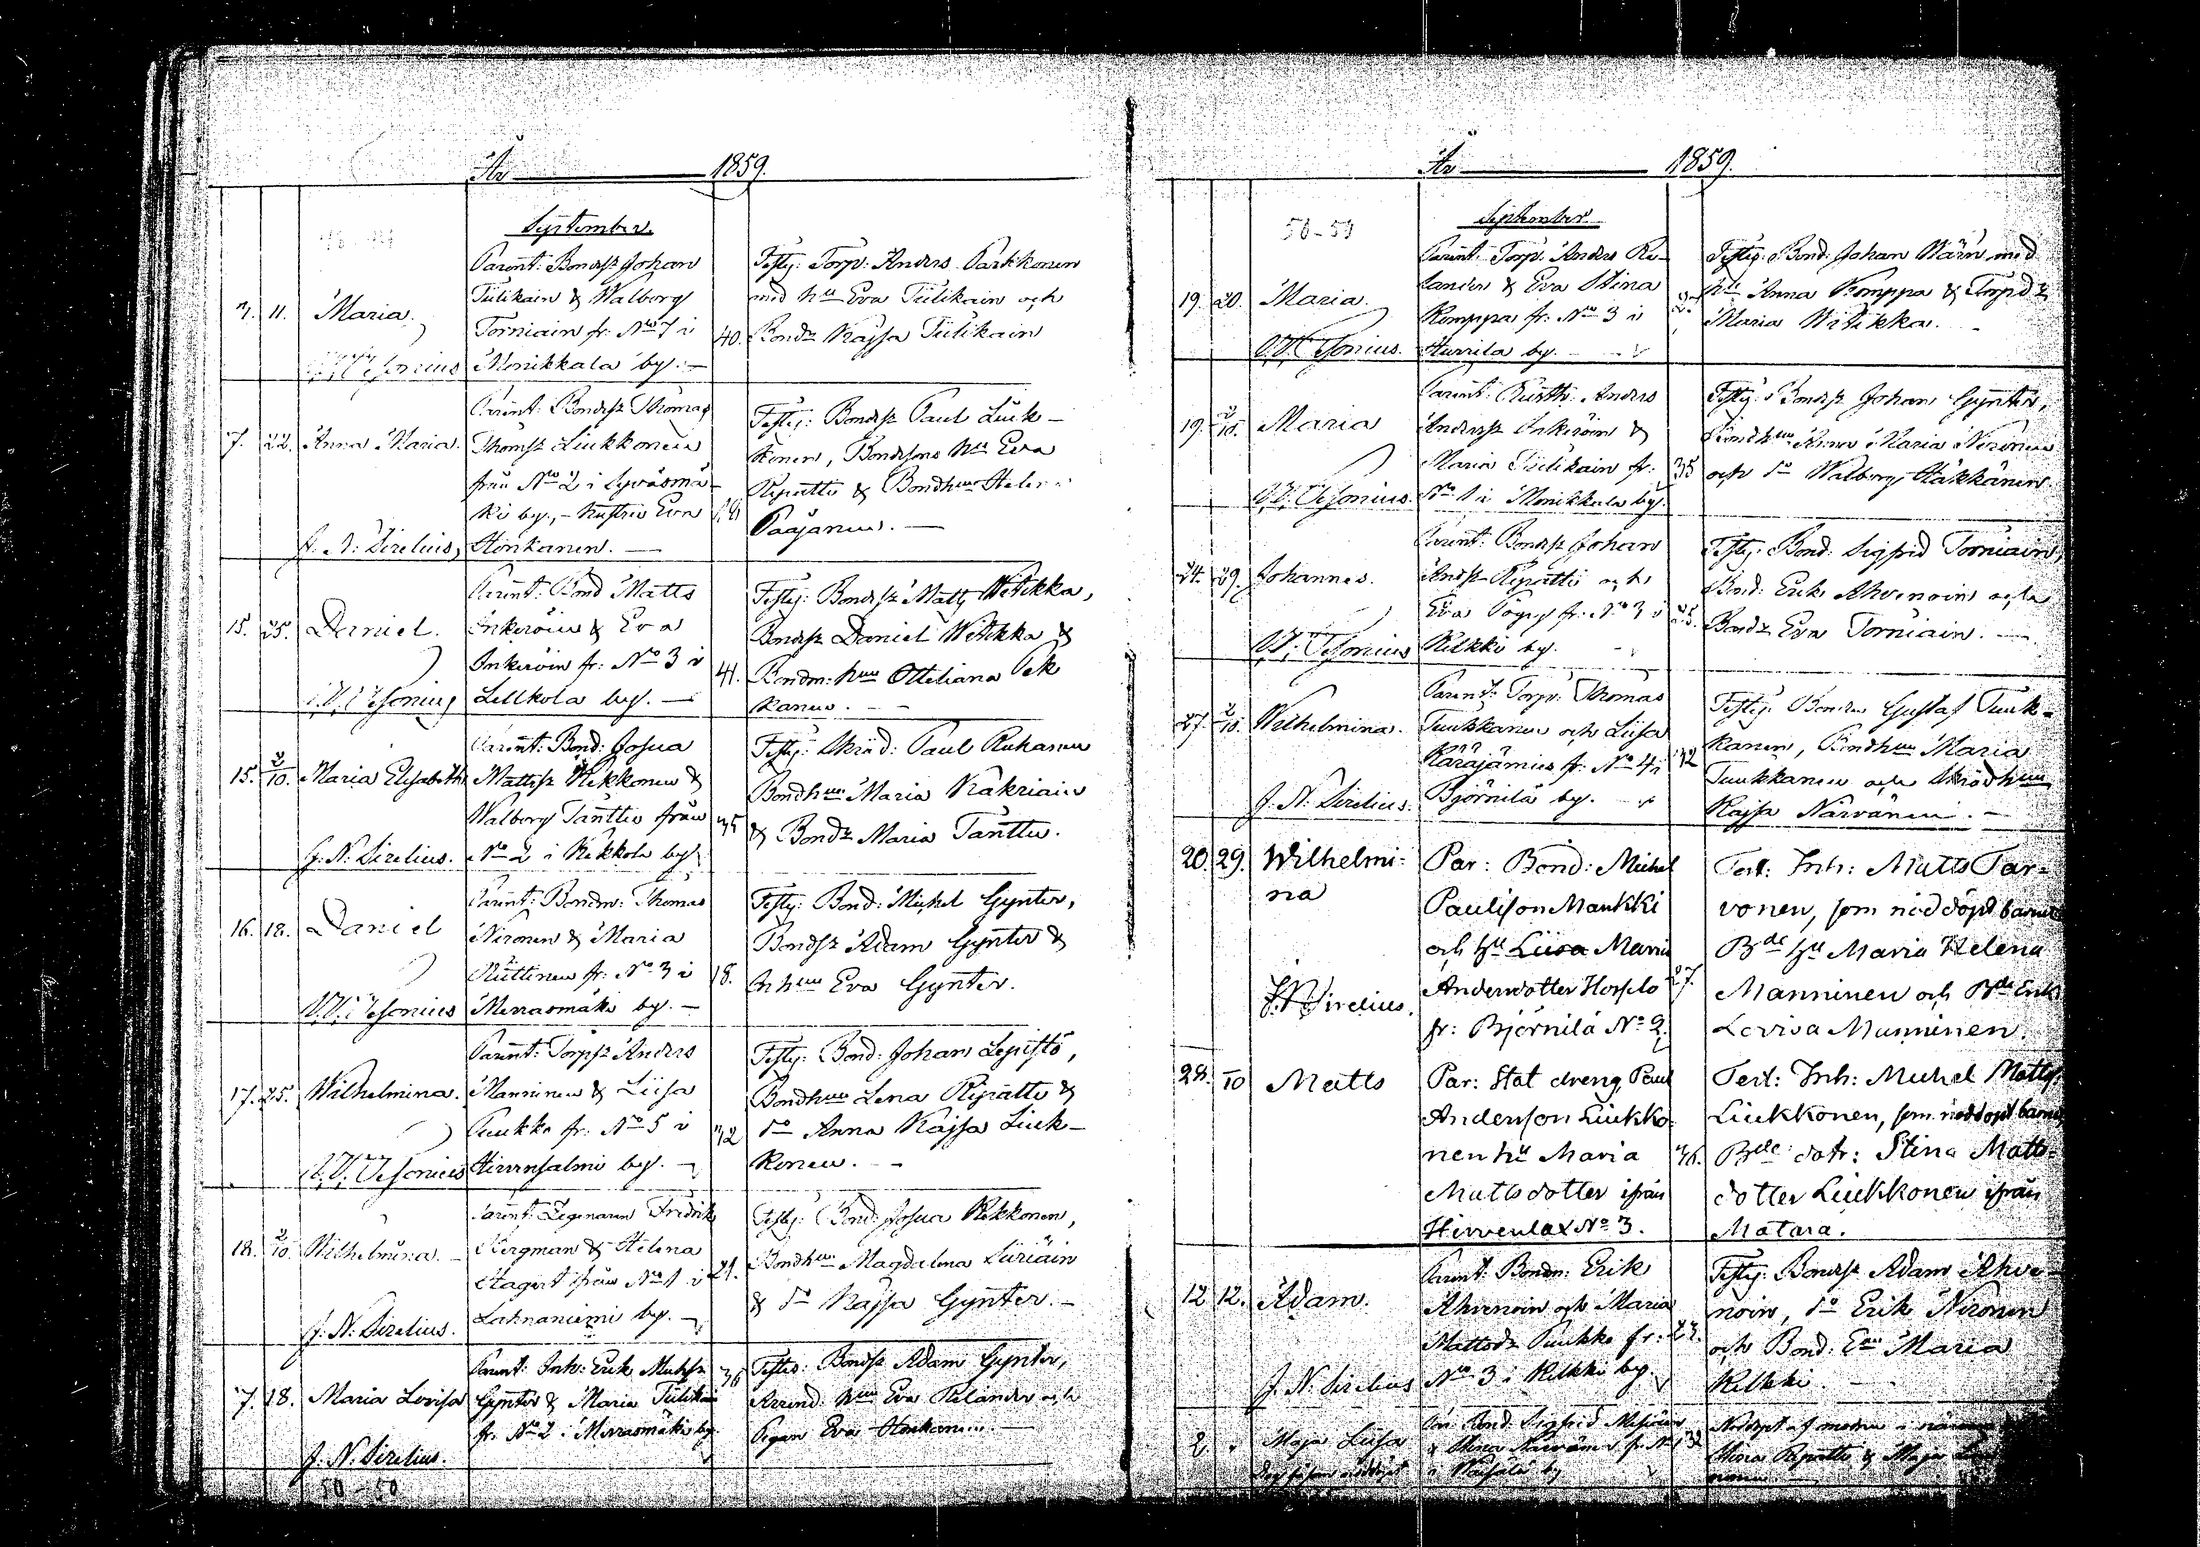 År 1859.
September.
7. 11. Maria.
Parent: Bondess Johan
Tiilikain & Walborg
Torniain fr. No 7 i
Monikkala by. —
40.
Testes: Torp: Anders Parkkonen
med hu Eva Tiilikain och
Bondr Kajsa Tiilikain
7. 22. Anna Maria.
J. N: Sirelius,
Parent: Bondess Thomas
Thomss Liukkonen
från No 2 i
ki by, – hustru Eva
Honkanen. —
Testes: Bondess Paul Liuk-
konen, Bondesons hu Eva
Repatti & Bondhun Helena
Paajanen. —
15. 25. Daniel.
V. V. Vesonius
Parent: Bond Matts
Inkeroin & Eva
Inkeroin fr: No 3 i
Lellkola by. —
41.
Testes: Bondess Matts Witikka,
Bondess Daniel Witikka &
Bondm: hun Otteliana Pek
kanen. —
15. 2/10. Maria Elisabeth
J. N. Sirelius.
Parent: Bond: Josua
Mattess Kekkonen &
Walborg Tanttu från
No 2 i Kekkola by.
35
Testes: Skräd: Paul Ruhanen
Bondhun Maria Kakriain
& Bondr Maria Tanttu.
16. 18. Daniel
V. V. Vesonius
Parent: Bondm: Thomas
Nironen & Maria
Rüttinen fr: No 3 i
Merrasmäki by. —
18.
Testes: Bond: Michel Gynter,
Bondss Adam Gynter &
Inhun Eva Gynter.
17. 25. Wilhelmina.
V. V. Vesonius
Parent: Torpss Anders
Manninen & Liisa
Puukka fr: No 5 i
Hirvensalmi by. —
32
Testes: Bond: Johan Lepistö,
Bondhun Lena Repatti &
do Anna Kajsa Liuk-
konen. —
18. 2/10. Wilhelmina.
J. N. Sirelius.
Parent: Legomann Fridrik
Bergman & Helena
Hagert ifrån No 1 i
Lahnaniemi by. —
21.
Testes: Bond: Josua Kekkonen,
Bondhun Magdalena Siiriäin
& do Kajsa Gynter. —
7. 18. Maria Lovisa
J. N. Sirelius.
Parent: Inh: Erik Michss
Gynter & Maria Tiilikai
fr. No 2 i Merrasmäki by.
36
Testes: Bondss Adam Gynter,
Arrend: hun Eva Relander och
Pigan Eva Honkanen. —
50–50
År 1859.
50–59
September.
19. 20. Maria.
V. V. Vesonius.
Parent: Torp: Anders Re-
lander & Eva Stina
Komppa fr: No 3 i
Hurrila by. —
Testes: Bond: Johan Wärn med
hu Anna Komppa & Torpdr
Maria Witikka.
19. 2/10. Maria
V. V. Vesonius.
Anders
Anderss Inkeroin &
Maria Tiilikain fr:
No 1 i Monikkala by.
35
Testes: Bondess Johan Gynter,
Bondhun Anna Maria Nironen
och do Walborg Häkkänen.
24. 29. Johannes.
V. V. Vesonius
Parent: Bondess Johan
Andss Repatti och
Eva Poyry fr. No 3 i
Kelkki by.
25.
Testes: Bond: Sigfrid Torniain,
Bond: Erik Ahvenoin och
Bondr Eva Torniain. —
27. 2/10. Wilhelmina.
J. N. Sirelius.
Parent: Torp: Thomas
Tuukkanen och Liisa
Käräjämies fr: No 4 i
Björnilä by.
32
Testes: Gustaf Tuuk-
kanen, Bondhun Maria
Tuukkanen och Skrädhun
Kajsa Närvänen. —
20. 29. Wilhelmi-
na
J. N. Sirelius.
Par: Bond: Michel
Paulisson Maukki
och hu Liisa Maria
Andersdotter Hosslo
fr: Björnilä No 2.
27.
Test: Inh: Matts Tar-
vonen, som nöddöpt barnet
Bde hu Maria Helena
Manninen och Bde Enk:
Lovisa Manninen.
28. 10 Matts
Par: Stat dreng Paul
Andersson Liukko-
nen hu Maria
Mattsdotter ifrån
Hirvenlax No 3.
36.
Test: Inh: Michel Matts:
Liukkonen, som nöddöpt barnet,
Bde dotr: Stina Matts-
dotter Liukkonen ifrån
Matara.
12. 12. Adam.
J. N. Sirelius
Parent: Bondn: Erik
Ahvenoin och Maria
Mattsdr Puukko fr:
No 3 i Kelkki by.
23.
Testes: Bondess Adam Ahve-
noin, do Erik Nironen
och Bond: Eu Maria
Kelkki.
2. Maja Liisa
Par: Bond: Sigfrid
Stina Närvänen fr. No 1
by
Nöddöpt af modren i närvaro
Stina Repatti & Maja